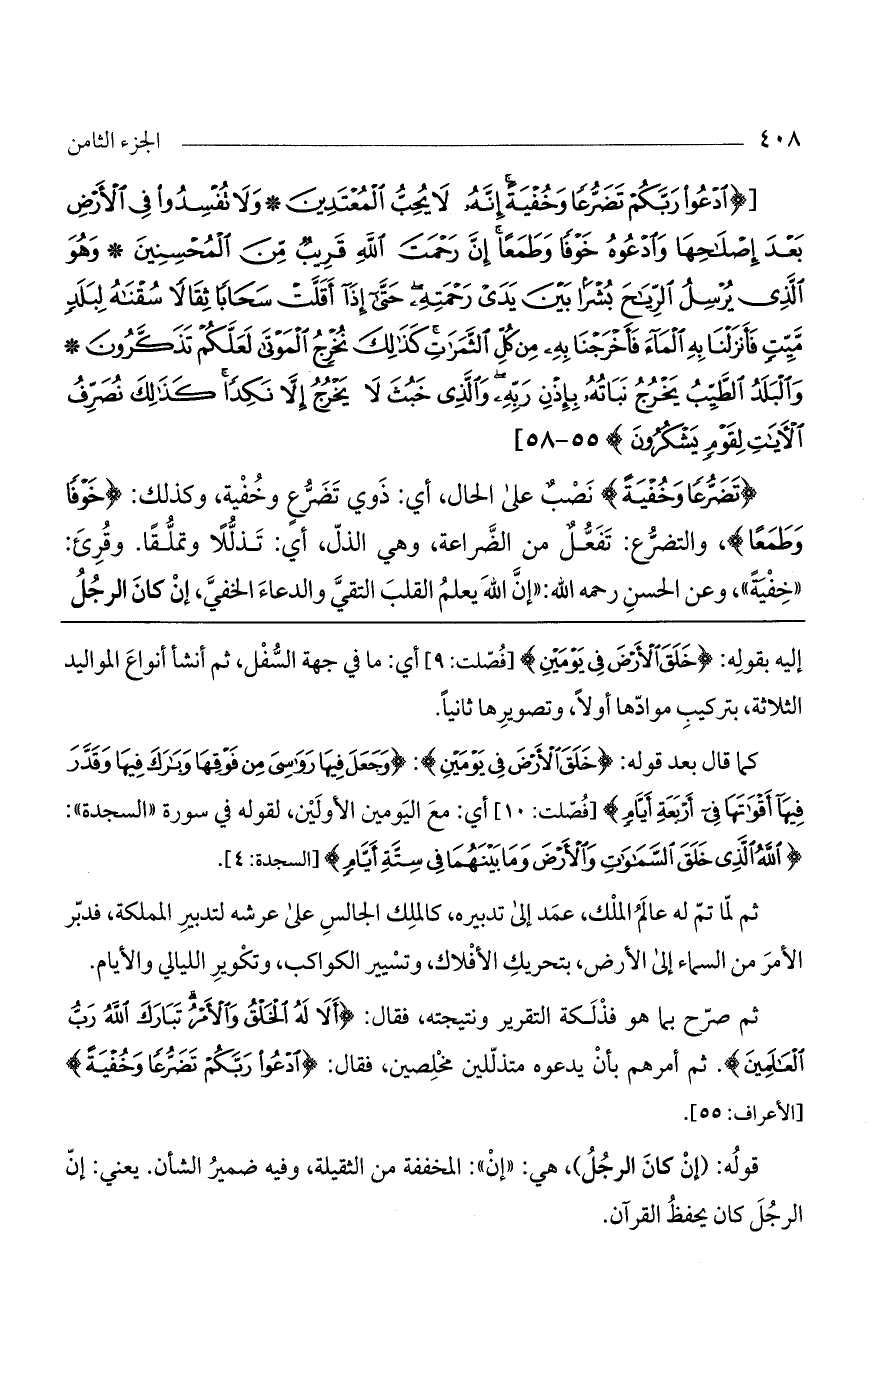 ٤٠٨ الجزء الثامن
[﴿ٱدْعُوا۟ رَبَّكُمْ تَضَرُّعًا وَخُفْيَةً ۚ إِنَّهُۥ لَا يُحِبُّ ٱلْمُعْتَدِينَ * وَلَا تُفْسِدُوا۟ فِى ٱلْأَرْضِ
بَعْدَ إِصْلَٰحِهَا وَٱدْعُوهُ خَوْفًا وَطَمَعًا ۚ إِنَّ رَحْمَتَ ٱللَّهِ قَرِيبٌ مِّنَ ٱلْمُحْسِنِينَ * وَهُوَ
ٱلَّذِى يُرْسِلُ ٱلرِّيَٰحَ بُشْرًۢا بَيْنَ يَدَىْ رَحْمَتِهِۦ ۖ حَتَّىٰٓ إِذَآ أَقَلَّتْ سَحَابًا ثِقَالًا سُقْنَٰهُ لِبَلَدٍ
مَّيِّتٍ فَأَنزَلْنَا بِهِ ٱلْمَآءَ فَأَخْرَجْنَا بِهِۦ مِن كُلِّ ٱلثَّمَرَٰتِ ۚ كَذَٰلِكَ نُخْرِجُ ٱلْمَوْتَىٰ لَعَلَّكُمْ تَذَكَّرُونَ *
وَٱلْبَلَدُ ٱلطَّيِّبُ يَخْرُجُ نَبَاتُهُۥ بِإِذْنِ رَبِّهِۦ ۖ وَٱلَّذِى خَبُثَ لَا يَخْرُجُ إِلَّا نَكِدًا ۚ كَذَٰلِكَ نُصَرِّفُ
ٱلْآيَٰتِ لِقَوْمٍ يَشْكُرُونَ﴾ ٥٥-٥٨]
﴿تَضَرُّعًا وَخُفْيَةً﴾ نَصْبٌ علىٰ الحال، أي: ذَوي تَضَرُّعٍ وخُفْية، وكذلك: ﴿خَوْفًا
وَطَمَعًا﴾، والتضرُّع: تَفَعُّلٌ من الضَّراعة، وهي الذلّ، أي: تَذلُّلًا وتملُّقًا. وقُرِئَ:
«خِفْيَةً»، وعن الحسنِ رحمه الله: «إنَّ اللهَ يعلمُ القلبَ التقيَّ والدعاءَ الخفيَّ، إنْ كانَ الرجُلُ
إليه بقولِه: ﴿خَلَقَ ٱلْأَرْضَ فِى يَوْمَيْنِ﴾ [فُصّلت: ٩] أي: ما في جهة السُّفْل، ثم أنشأ أنواعَ المواليد
الثلاثة، بتركيبِ موادّها أولاً، وتصويرِها ثانياً.
كما قال بعد قوله: ﴿خَلَقَ ٱلْأَرْضَ فِى يَوْمَيْنِ﴾: ﴿وَجَعَلَ فِيهَا رَوَٰسِىَ مِن فَوْقِهَا وَبَٰرَكَ فِيهَا وَقَدَّرَ
فِيهَآ أَقْوَٰتَهَا فِىٓ أَرْبَعَةِ أَيَّامٍ﴾ [فُصّلت: ١٠] أي: معَ اليَومين الأولَيْن، لقوله في سورة «السجدة»:
﴿ٱللَّهُ ٱلَّذِى خَلَقَ ٱلسَّمَٰوَٰتِ وَٱلْأَرْضَ وَمَا بَيْنَهُمَا فِى سِتَّةِ أَيَّامٍ﴾ [السجدة: ٤].
ثم لمّا تمّ له عالَمُ الملْك، عمَد إلىٰ تدبيره، كالملِك الجالسِ علىٰ عرشه لتدبيرِ المملكة، فدبّر
الأمرَ من السماء إلىٰ الأرض، بتحريكِ الأفْلاك، وتسْيير الكواكب، وتكْويرِ الليالي والأيام.
ثم صرّح بما هو فذْلَكة التقرير ونتيجته، فقال: ﴿أَلَا لَهُ ٱلْخَلْقُ وَٱلْأَمْرُ ۗ تَبَارَكَ ٱللَّهُ رَبُّ
ٱلْعَٰلَمِينَ﴾. ثم أمرهم بأنْ يدعوه متذلّلين مخْلِصين، فقال: ﴿ٱدْعُوا۟ رَبَّكُمْ تَضَرُّعًا وَخُفْيَةً﴾
[الأعراف: ٥٥].
قولُه: (إنْ كانَ الرجُلُ)، هي: «إنْ»: المخففة من الثقيلة، وفيه ضميرُ الشأن. يعني: إنّ
الرجُلَ كان يحفظُ القرآن.